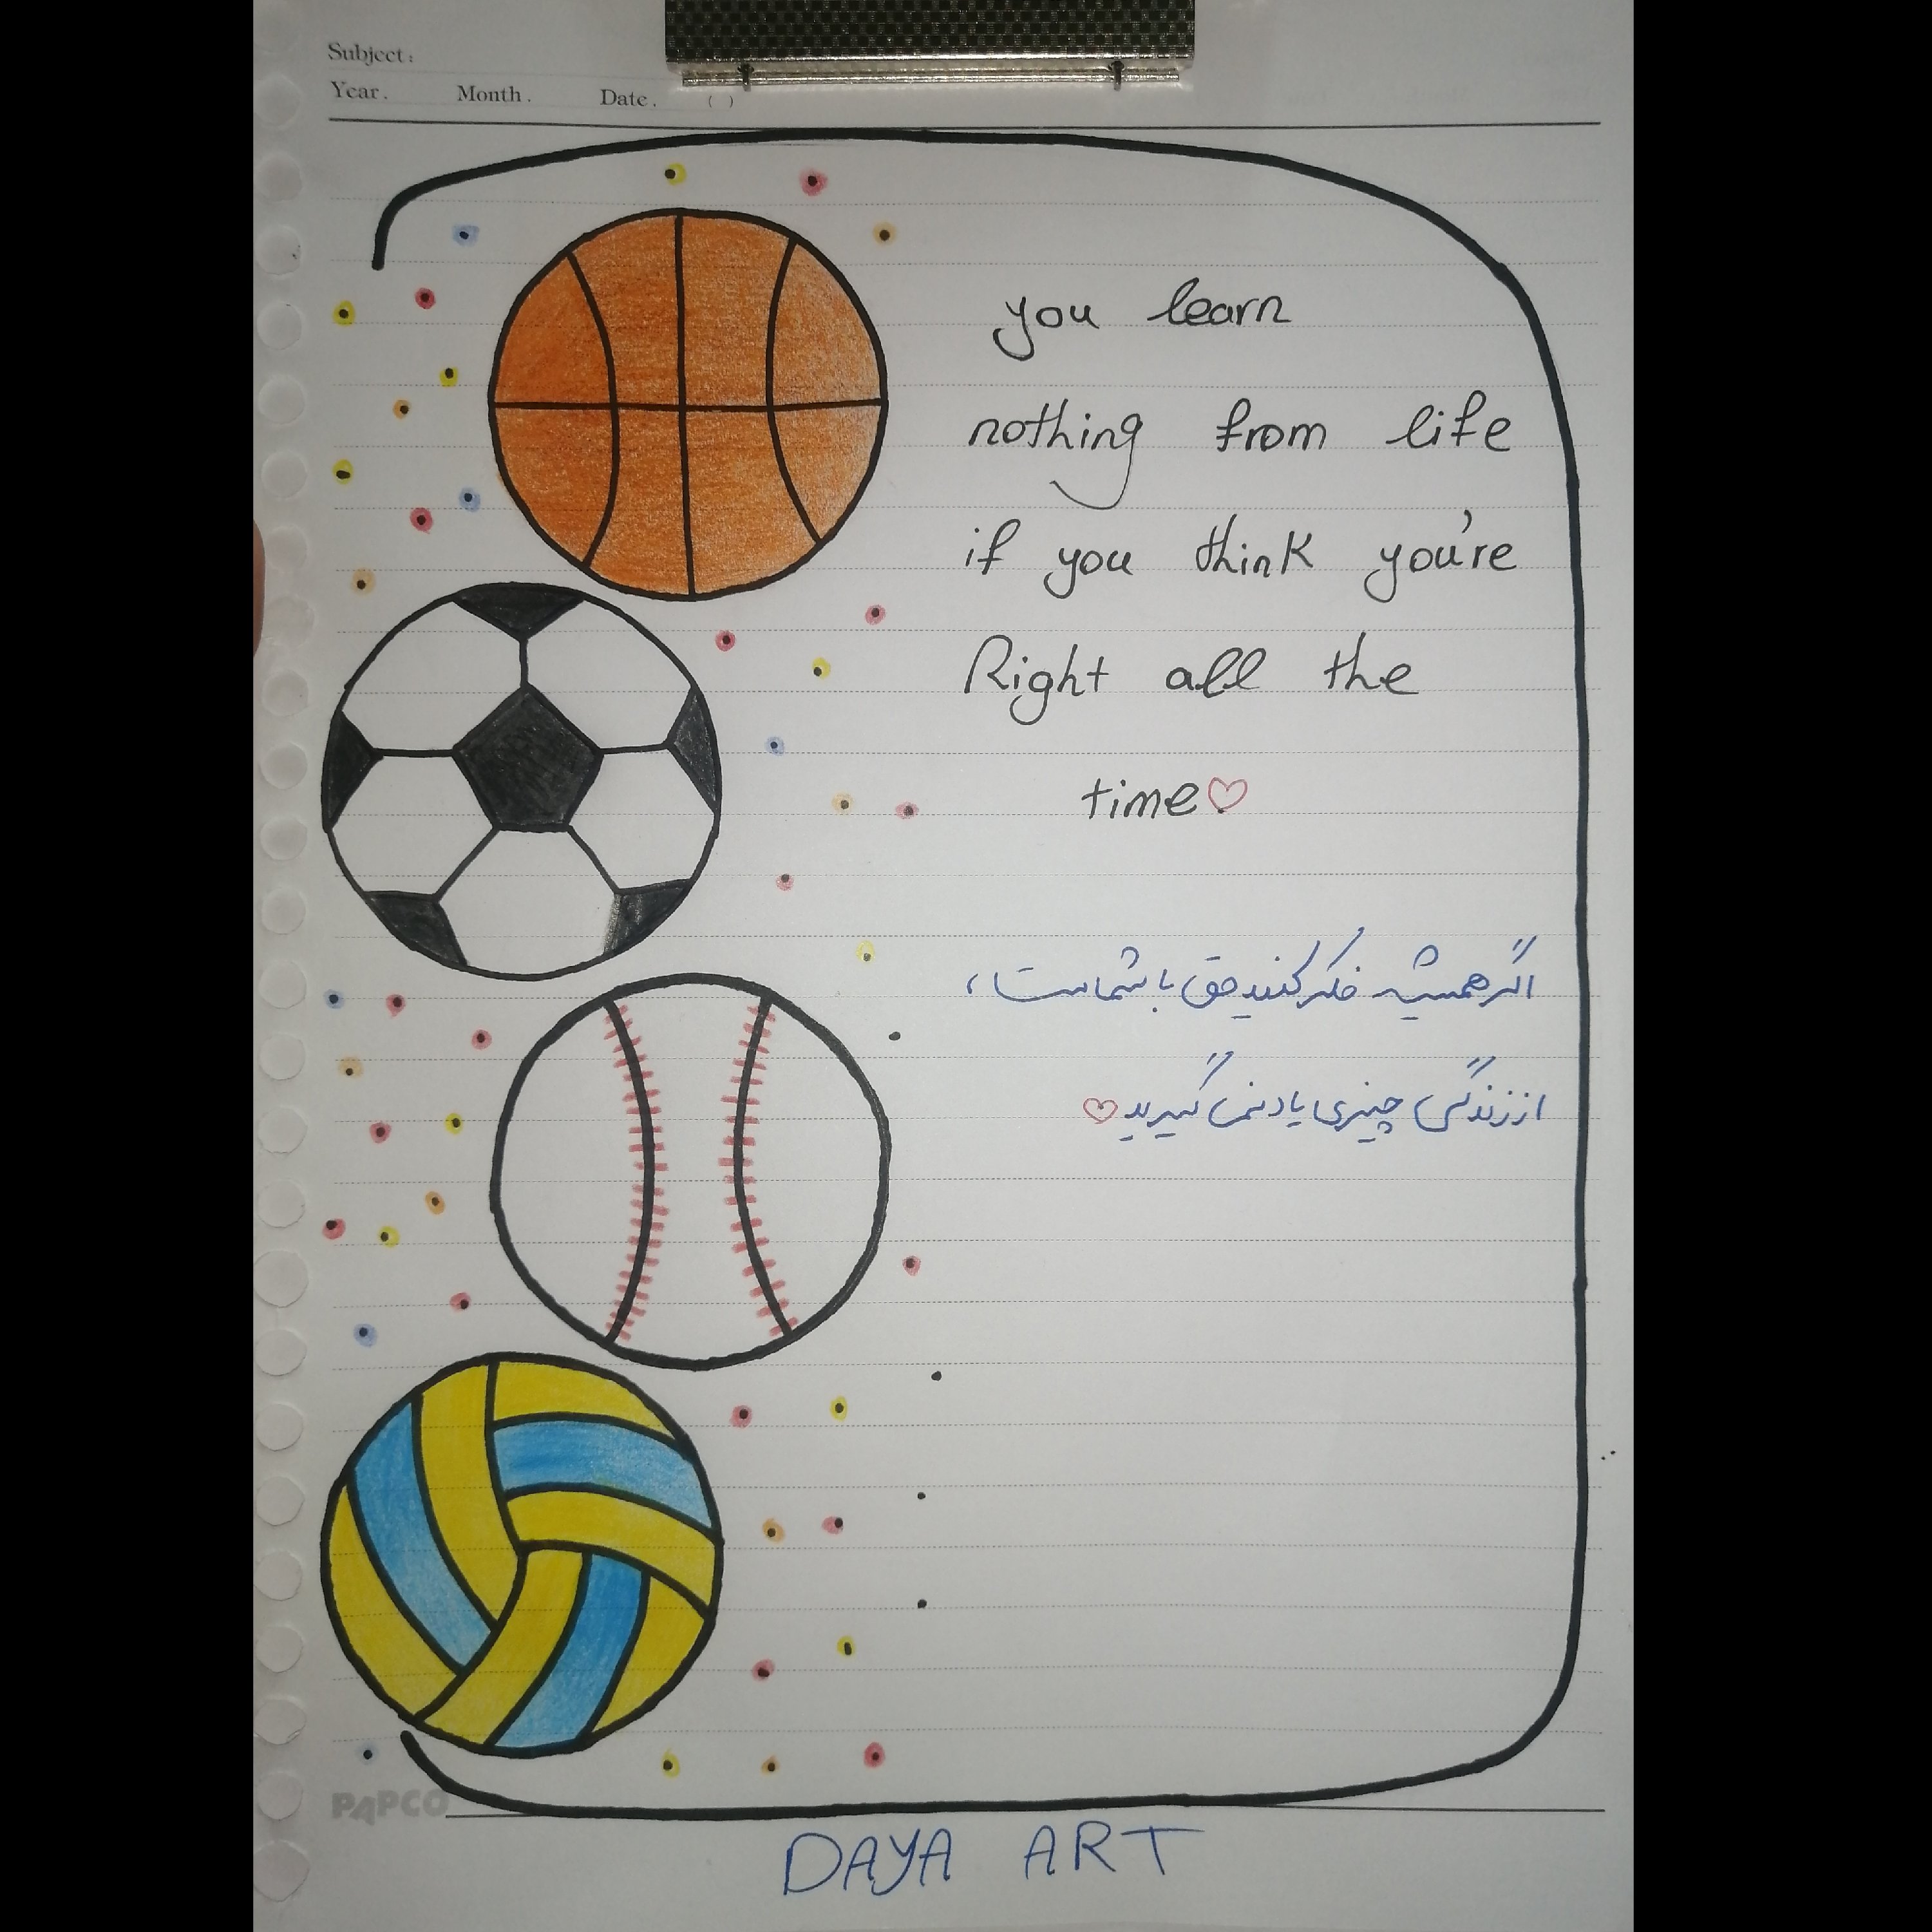 Subject:
Year. Month. Date. ( )
you learn
nothing from life
if you think you're
Right all the
time♡
اگر همیشه فکر کنید حق با شماست،
از زندگی چیزی یاد نمی گیرید♡
PAPCO
DAYA ART